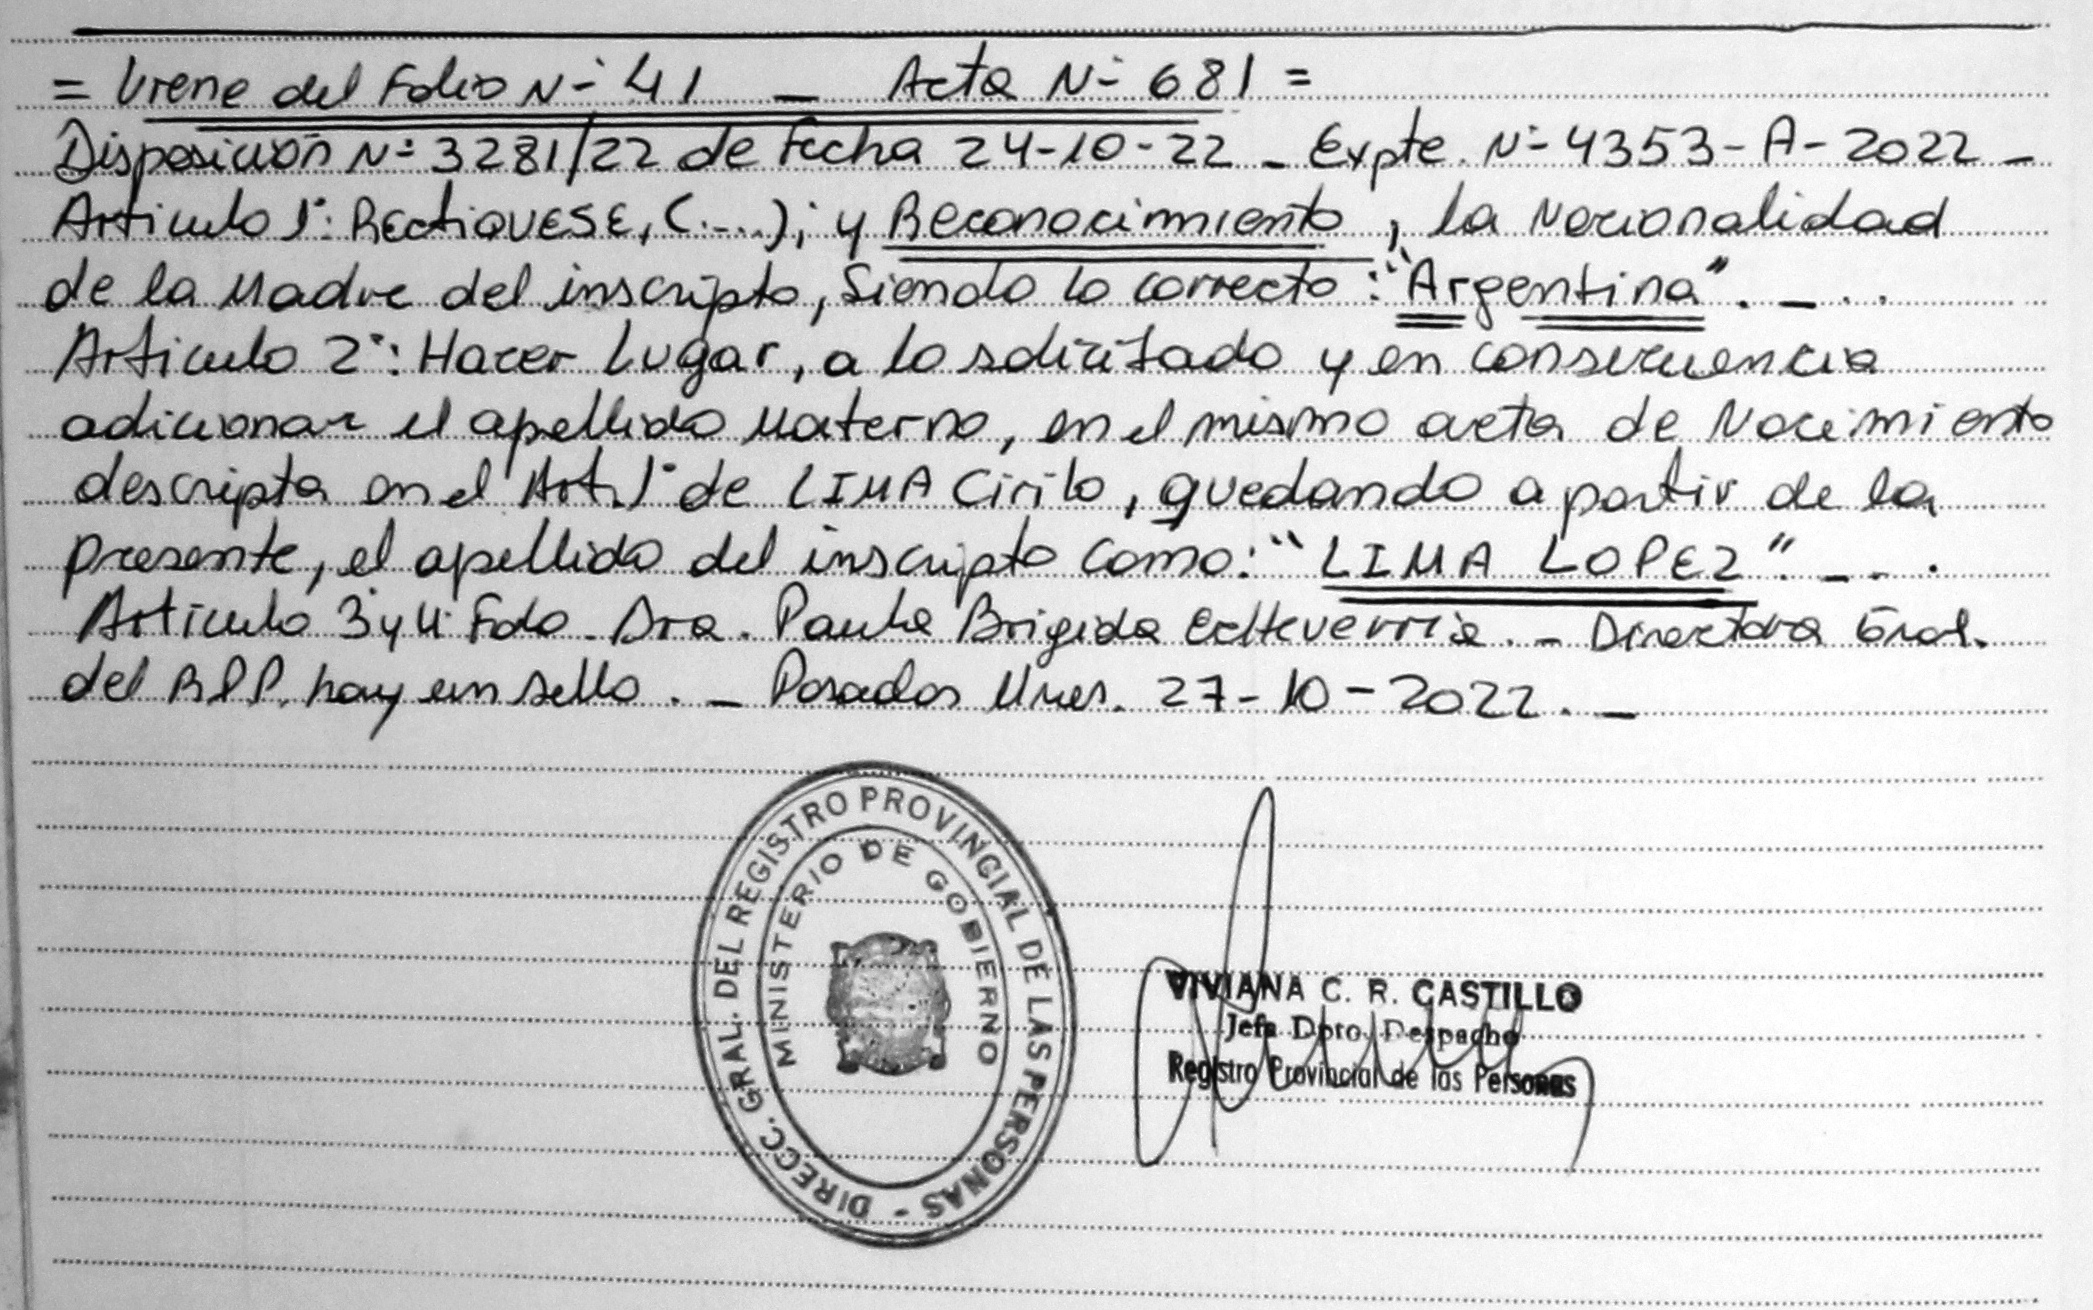 = Viene del Folio N- 41 _ Acta N- 681 =
Disposición N- 3281/22 de Fecha 24-10-22 _ Expte. N- 4353-A-2022 _
Articulo 1°: RectiQUESE, (...); y Reconocimiento, la Nacionalidad
de la Madre del inscripto, Siendo lo correcto: "Argentina". _ . .
Articulo 2°: Hacer Lugar, a lo solicitado y en consecuencia
adicionar el apellido Materno, en el mismo acta de Nacimiento
descripta en el Art. 1° de LIMA Cirilo, quedando a partir de la
presente, el apellido del inscripto como: "LIMA LOPEZ" . _ . .
Articulo 3 y 4° Fdo. Dra. Paula Brigida Echteverria. _ Directora Gral.
del RPP. hay un sello. _ Posadas Mnes. 27-10-2022. _
DIRECC. GRAL. DEL REGISTRO PROVINCIAL DE LAS PERSONAS -
MINISTERIO DE GOBIERNO
VIVIANA C. R. CASTILLO
Jefa Dpto. Despacho
Registro Provincial de las Personas